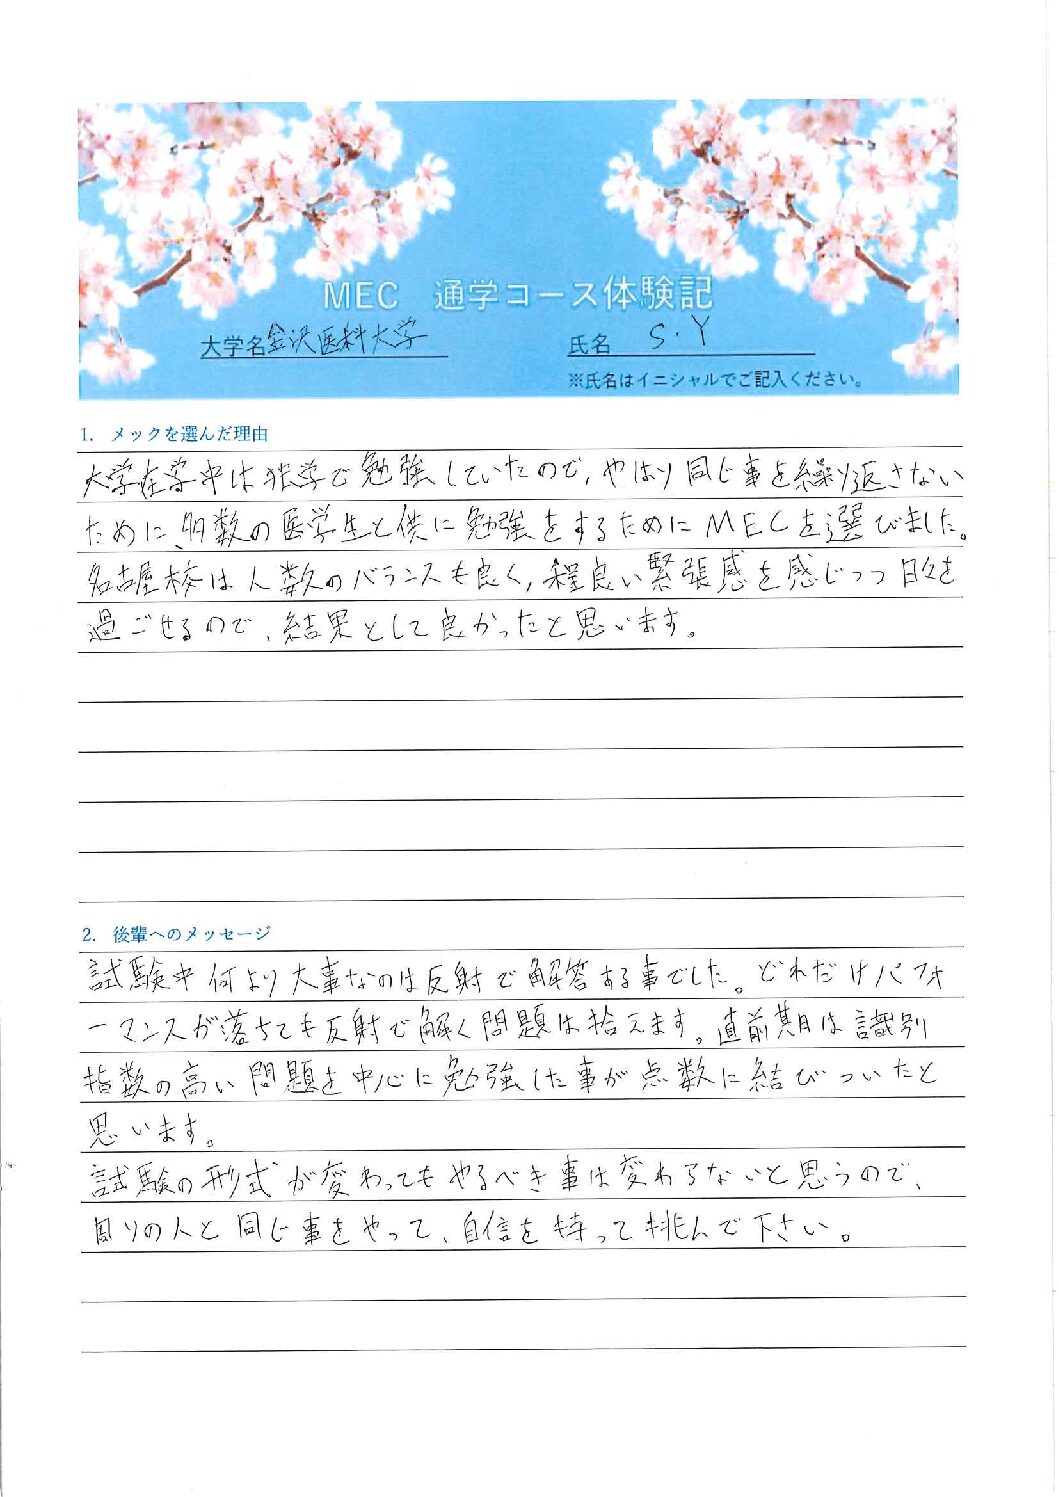 MEC 通学コース体験記
大学名 金沢医科大学
氏名 S.Y
※氏名はイニシャルでご記入ください。
1. メックを選んだ理由
大学在学中は独学で勉強していたので、やはり同じ事を繰り返さない
ために、多数の医学生と供に勉強をするためにMECを選びました。
名古屋校は人数のバランスも良く、程良い緊張感を感じつつ日々を
過ごせるので、結果として良かったと思います。
2. 後輩へのメッセージ
試験中何より大事なのは反射で解答する事でした。どれだけパフォ
ーマンスが落ちても反射で解く問題は拾えます。直前期は識別
指数の高い問題を中心に勉強した事が点数に結びついたと
思います。
試験の形式が変わってもやるべき事は変わらないと思うので、
周りの人と同じ事をやって、自信を持って挑んで下さい。